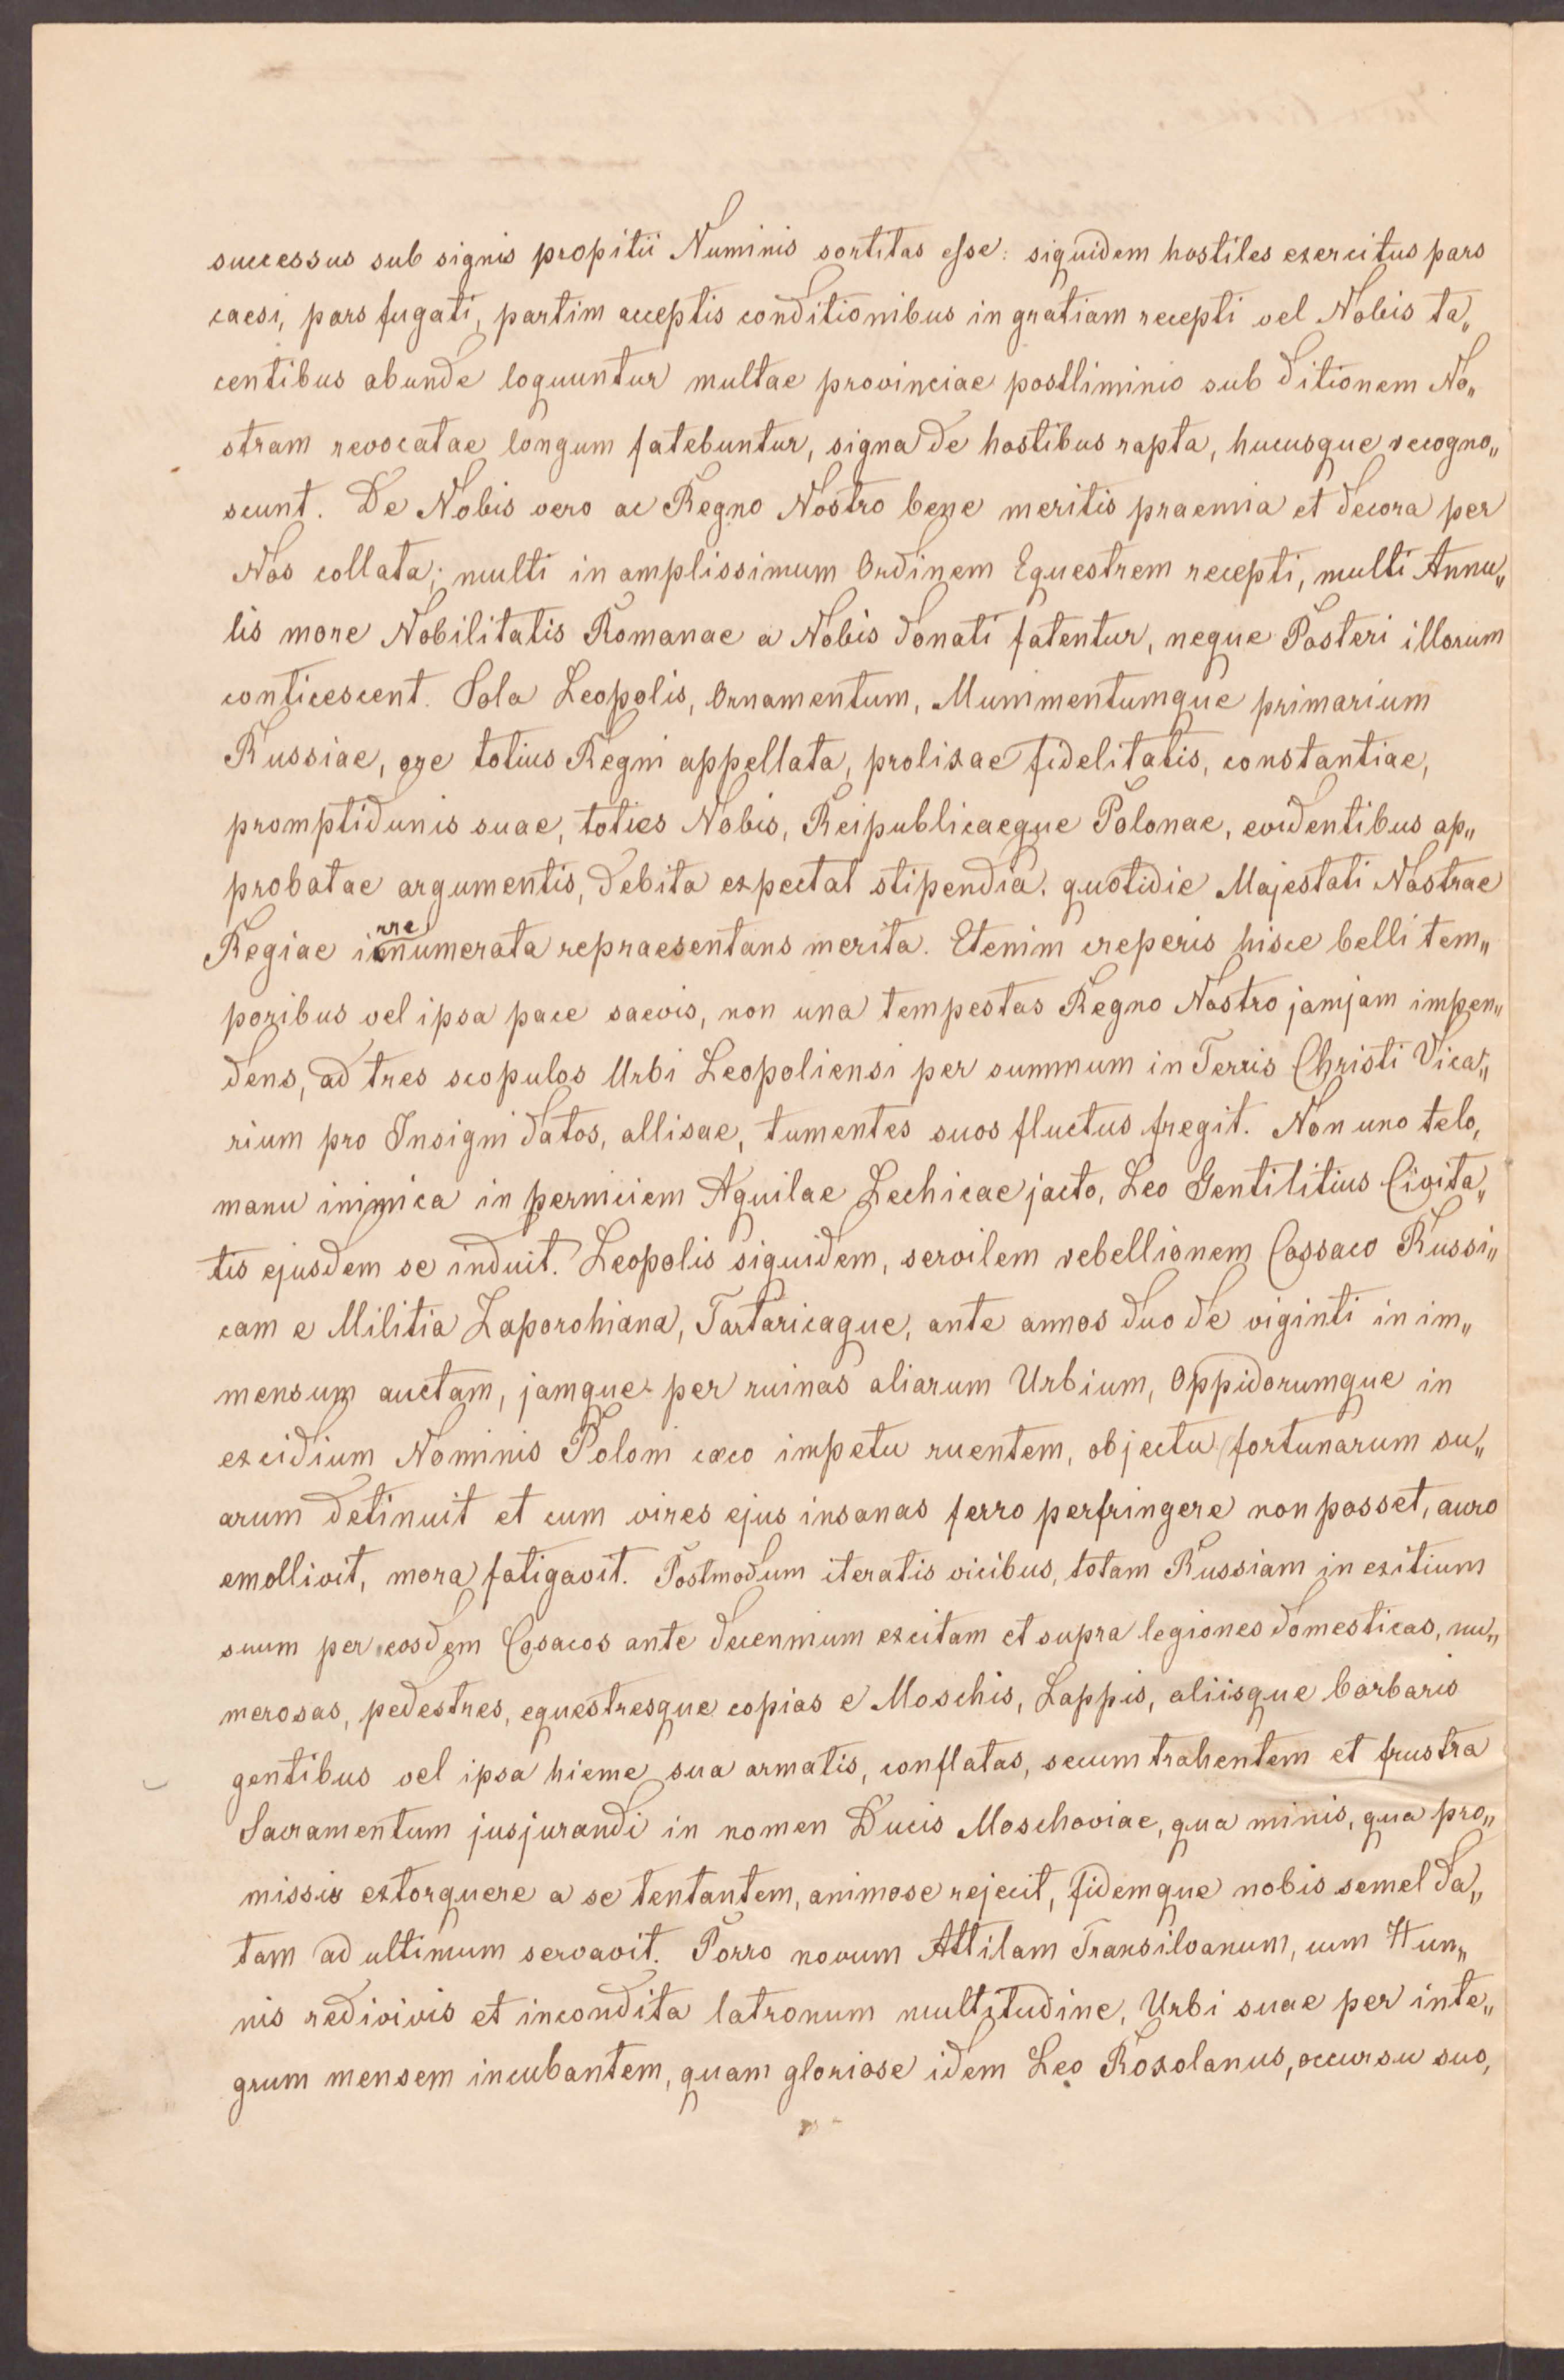 successus sub signis propitii Numinis sortitas esse: siquidem hostiles exercitus pars
caesi, pars fugati, partim acceptis conditionibus in gratiam recepti vel Nobis ta„
centibus abunde loquuntur multae provinciae postliminio sub ditionem No„
stram revocatae longum fatebuntur, signa de hostibus rapta, hucusque recogno„
scunt. De Nobis vero ac Regno Nostro bene meritis praemia et decora per
Nos collata; multi in amplissimum Ordinem Equestrem recepti, multi Annu„
lis more Nobilitatis Romanae a Nobis donati fatentur, neque Posteri illorum
conticescent. Sola Leopolis, Ornamentum, Munimentumque primarium
Russiae, ore totius Regni appellata, prolixae fidelitatis, constantiae,
promptidunis suae, toties Nobis, Reipublicaeque Polonae, evidentibus ap„
probatae argumentis, debita expectat stipendia, quotidie Majestati Nostrae
Regiae innumerata repraesentans merita. Etenim creperis hisce belli tem„
poribus vel ipsa pace saevis, non una tempestas Regno Nostro jamjam impen„
dens, ad tres scopulos Urbi Leopoliensi per summum in Terris Christi Vica„
rium pro Insigni datos, allisae, tumentes suos fluctus fregit. Non uno telo,
manu inimica in perniciem Aquilae Lechicae jacto, Leo Gentilitius Civita„
tis ejusdem se induit. Leopolis siquidem, servilem rebellionem Cossaco Russi„
cam e Militia Zaporohiana, Tartaricaque, ante annos duo de viginti in im„
mensum auctam, jamque per ruinas aliarum Urbium, Oppidorumque in
excidium Nominis Poloni cæco impetu ruentem, objectu fortunarum su„
arum detinuit et cum vires ejus insanas ferro perfringere non posset, auro
emollivit, mora fatigavit. Postmodum iteratis vicibus, totam Russiam in exitium
suum per eosdem Cosacos ante decennium excitam et supra legiones domesticas, nu„
merosas, pedestres, equestresque copias e Moschis, Lappis, aliisque barbaris
gentibus vel ipsa hieme sua armatis, conflatas, secum trahentem et frustra
Sacramentum jusjurandi in nomen Ducis Moschoviae, qua minis, qua pro„
missis extorquere a se tentantem, animose rejecit, fidemque nobis semel da„
tam ad ultimum servavit. Porro novum Attilam Transilvanum, cum Hun„
nis redivivis et incondita latronum multitudine, Urbi suae per inte„
grum mensem incubantem, quam gloriose idem Leo Roxolanus, occursu suo,